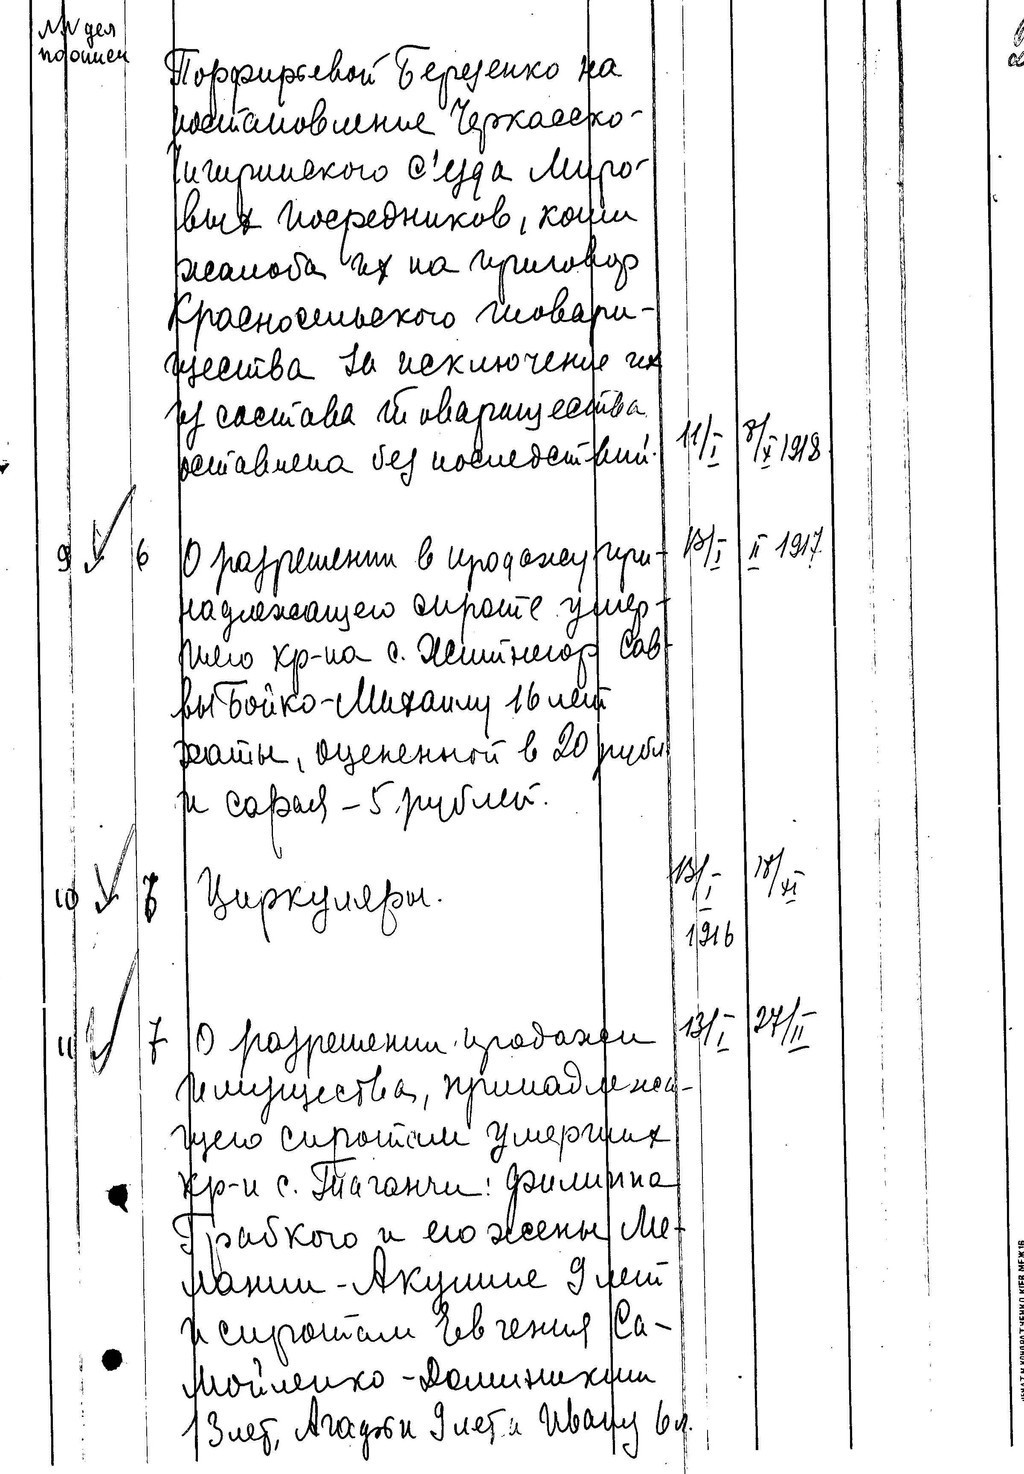 №№ дел
по описи
Порфирьевой Березенко на
постановление Черкасско-
Чигиринского с'езда Миро-
вых Посредников, коим
жалоба их на приговор
Красносельского товари-
щества за исключение их
из состава товарищества
оставлена без последствий. 11/I 8/X 1918
9 6 О разрешении в продажу при- 13/I II 1917
надлежащего сироте умер-
шего кр-на с. Хмитнегор Сав-
вы Бойко-Михаилу 16 лет
хаты, оцененной в 20 рубл
и сарая - 5 рублей.
10 6 Циркуляры. 13/I 18/XI
1916
11 7 О разрешении продажи 13/I 27/II
имущества, принадлежа-
щего сиротам умерших
кр-н с. Таганчи: Филиппа
Грабкого и его жены Ме-
лании - Акулине 9 лет
и сиротам Евгения Са-
мойленко - Доминикии
13 лет, Агафьи 9 лет и Ивану 6 л.